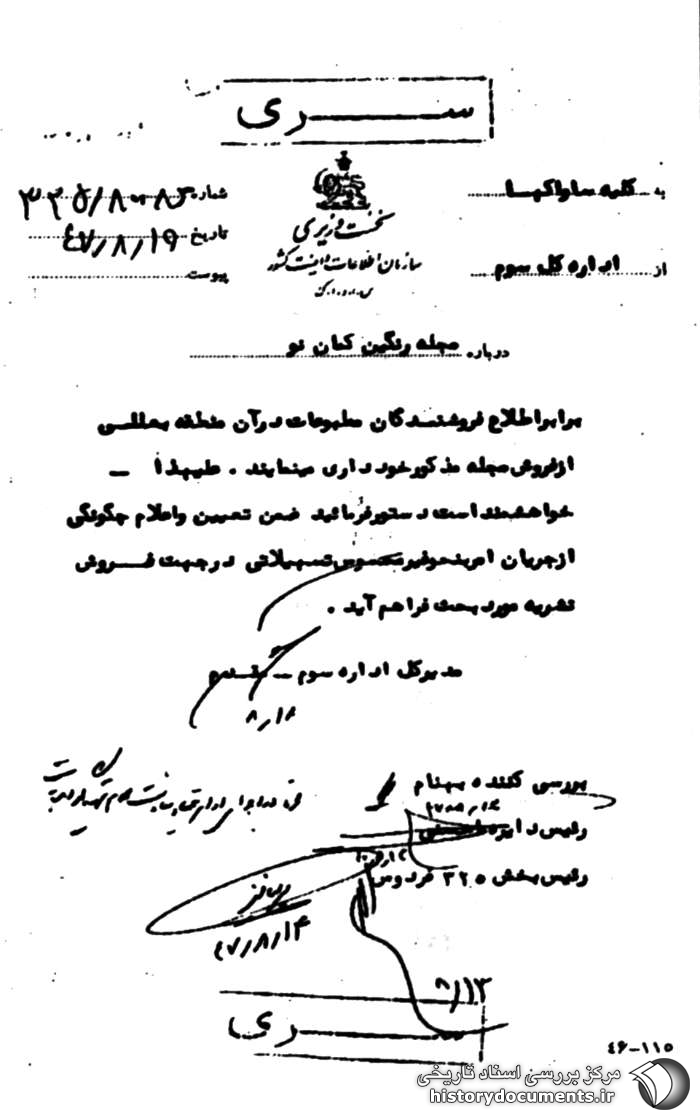 سری
به کلیه ساواکها
از اداره کل سوم
نخست وزیری
سازمان اطلاعات و امنیت کشور
س.ا.و.ا.ک
شماره ۳۲۵/۸۰۸۳
تاریخ ۴۷/۸/۱۹
پیوست
درباره مجله رنگین کمان نو
برابر اطلاع فروشندگان مطبوعات در آن منطقه بعللی
از فروش مجله مذکور خودداری مینمایند. علیهذا -
خواهشمند است دستور فرمائید ضمن تعیین و اعلام چگونگی
از جریان امر بنحو غیر محسوس تسهیلاتی در جهت فروش
نشریه مورد بحث فراهم آید.
مدیر کل اداره سوم - مقدم
۸/۱۶
بررسی کننده بهنام
رئیس دایره
رئیس بخش ۳۲۵ فردوس
۴۷/۸/۱۴
۸/۱۳
سری
۴۶-۱۱۵
مرکز بررسی اسناد تاریخی
historydocuments.ir